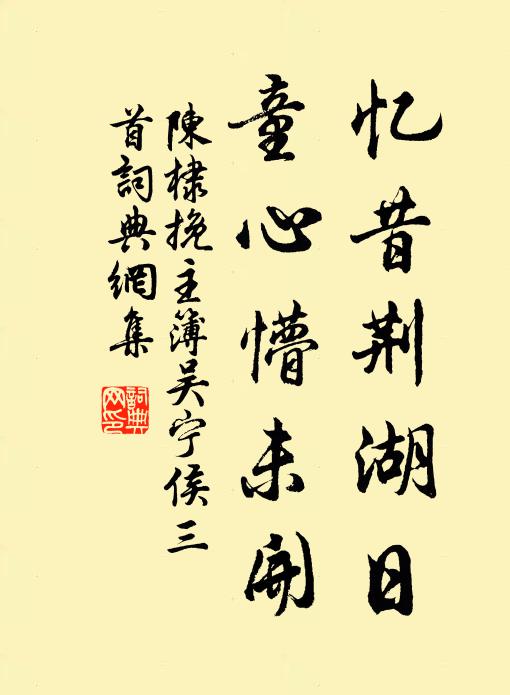 忆昔荆湖日
童心懵未開
陳棣挽主簿吴宁侯三
首詞典網集
詞典
网印